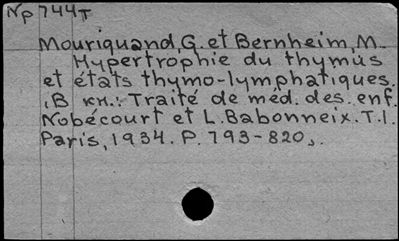 Np744T
Mouriquand, G. et Bernheim, M.
Hypertrophie du thymus
et états thymo-lymphatiques.
,В кн.: Traité de méd. des. enf.
Nobécourt et L. Babonneix. T.I.
Paris, 1934. P. 793-820,.